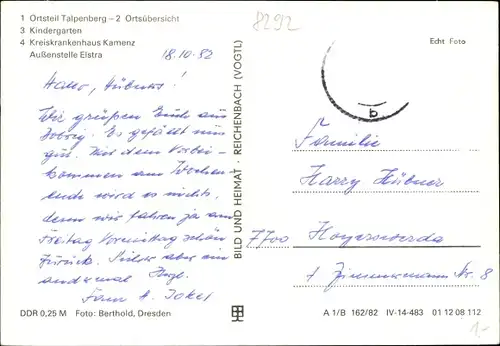 1 Ortsteil Talpenberg – 2 Ortsübersicht
3 Kindergarten
4 Kreiskrankenhaus Kamenz
Außenstelle Elstra
18.10.82
Hallo, Hübners!
Wir grüßen Euch aus
Es gefällt uns
gut. Mit dem Vorbei-
kommen am Wochen-
ende wird es nichts,
denn wir fahren ja am
Freitag Vormittag schon
zurück. Sicher aber ein
andermal. Hzgl.
Fam. H. Jokel
DDR 0,25 M Foto: Berthold, Dresden
BILD UND HEIMAT · REICHENBACH (VOGTL)
8292
Echt Foto
b
Familie
Harry Hübner
7700 Hoyerswerda
1 Zimmermann Str. 8
A 1/B 162/82 IV-14-483 01 12 08 112
1,-